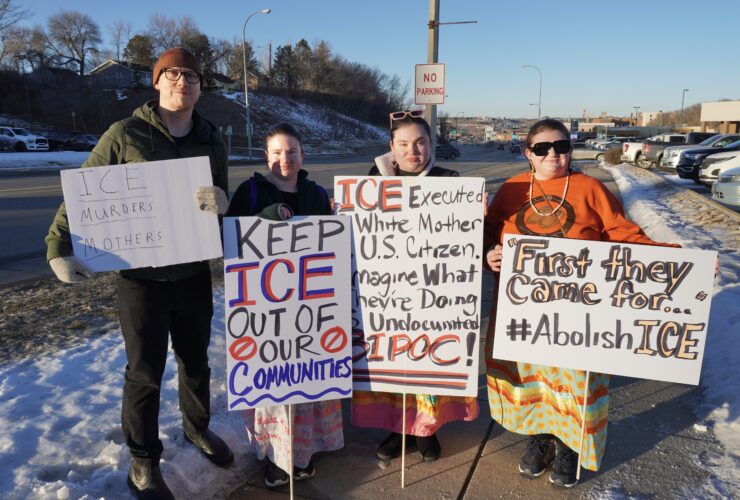 NO
PARKING
ICE
MURDERS
MOTHERS
KEEP
ICE
OUT OF
OUR
COMMUNITIES
ICE Executed
White Mother
U.S. Citizen.
Imagine What
They're Doing
Undocumented
BIPOC!
"First they
came for..."
#AbolishICE